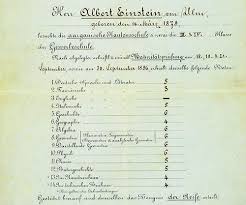 Herr Albert Einstein von Ulm,
geboren den 14. März 1879,
besuchte die aargauische Kantonsschule & zwar die III. & IV. Klasse
der Gewerbeschule.
Nach abgelegter schriftl. & mündl. Maturitätsprüfung am 18., 19. & 21.
September, sowie am 30. September 1896, erhielt derselbe folgende Noten:
1. Deutsche Sprache und Litteratur 5
2. Französische 3
3. Englische —
4. Italienische 5
5. Geschichte 6
6. Geographie 4
7. Algebra 6
8. Geometrie 6
9. Darstellende Geometrie 6
10. Physik 6
11. Chemie 5
12. Naturgeschichte 5
13. Kunstzeichnen 4
14. technisches Zeichnen 4
Gestützt hierauf wird demselben das Zeugnis der Reife erteilt.